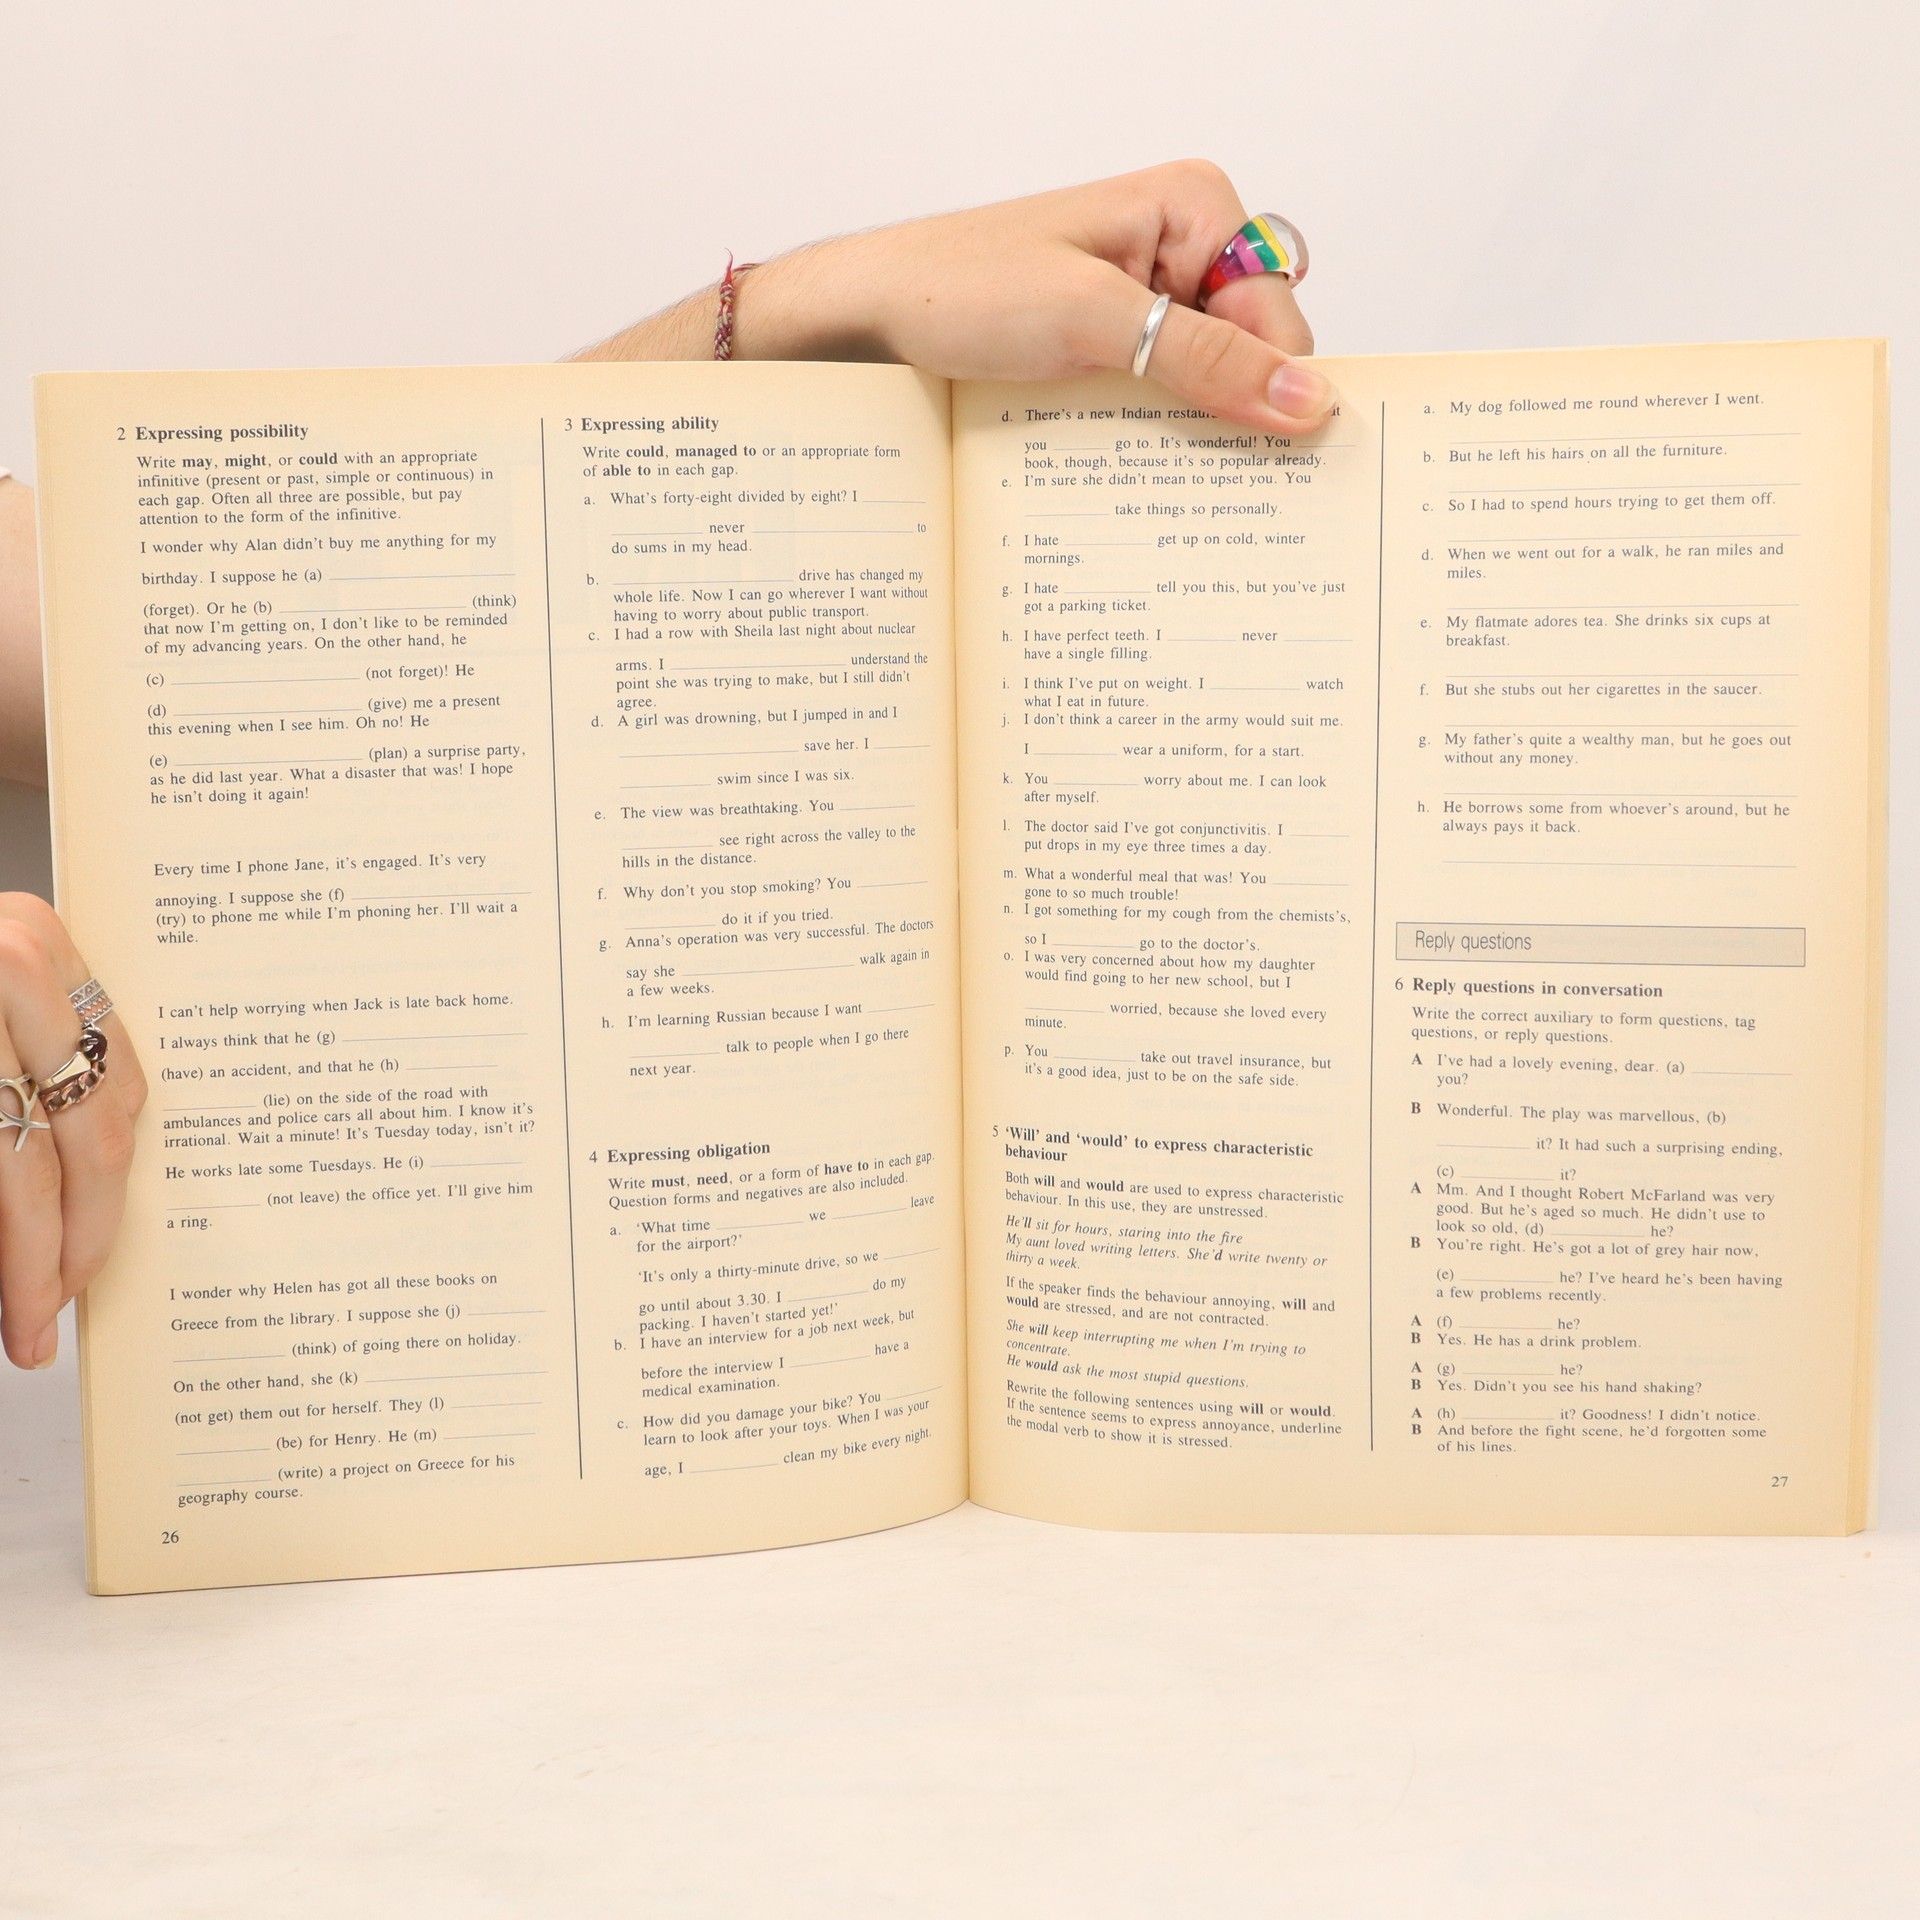 2 Expressing possibility
Write may, might, or could with an appropriate
infinitive (present or past, simple or continuous) in
each gap. Often all three are possible, but pay
attention to the form of the infinitive.
I wonder why Alan didn't buy me anything for my
birthday. I suppose he (a) ____
(forget). Or he (b) ____ (think)
that now I'm getting on, I don't like to be reminded
of my advancing years. On the other hand, he
(c) ____ (not forget)! He
(d) ____ (give) me a present
this evening when I see him. Oh no! He
(e) ____ (plan) a surprise party,
as he did last year. What a disaster that was! I hope
he isn't doing it again!
Every time I phone Jane, it's engaged. It's very
annoying. I suppose she (f) ____
(try) to phone me while I'm phoning her. I'll wait a
while.
I can't help worrying when Jack is late back home.
I always think that he (g) ____
(have) an accident, and that he (h) ____
____ (lie) on the side of the road with
ambulances and police cars all about him. I know it's
irrational. Wait a minute! It's Tuesday today, isn't it?
He works late some Tuesdays. He (i) ____
____ (not leave) the office yet. I'll give him
a ring.
I wonder why Helen has got all these books on
Greece from the library. I suppose she (j) ____
____ (think) of going there on holiday.
On the other hand, she (k) ____
(not get) them out for herself. They (l) ____
____ (be) for Henry. He (m) ____
____ (write) a project on Greece for his
geography course.
26
3 Expressing ability
Write could, managed to or an appropriate form
of able to in each gap.
a. What's forty-eight divided by eight? I ____
____ never ____ to
do sums in my head.
b. ____ drive has changed my
whole life. Now I can go wherever I want without
having to worry about public transport.
c. I had a row with Sheila last night about nuclear
arms. I ____ understand the
point she was trying to make, but I still didn't
agree.
d. A girl was drowning, but I jumped in and I
____ save her. I ____
____ swim since I was six.
e. The view was breathtaking. You ____
____ see right across the valley to the
hills in the distance.
f. Why don't you stop smoking? You ____
____ do it if you tried.
g. Anna's operation was very successful. The doctors
say she ____ walk again in
a few weeks.
h. I'm learning Russian because I want ____
____ talk to people when I go there
next year.
4 Expressing obligation
Write must, need, or a form of have to in each gap.
Question forms and negatives are also included.
a. 'What time ____ we ____ leave
for the airport?'
'It's only a thirty-minute drive, so we ____
go until about 3.30. I ____ do my
packing. I haven't started yet!'
b. I have an interview for a job next week, but
before the interview I ____ have a
medical examination.
c. How did you damage your bike? You ____
learn to look after your toys. When I was your
age, I ____ clean my bike every night.
d. There's a new Indian
you ____ go to. It's wonderful! You ____
book, though, because it's so popular already.
e. I'm sure she didn't mean to upset you. You
____ take things so personally.
f. I hate ____ get up on cold, winter
mornings.
g. I hate ____ tell you this, but you've just
got a parking ticket.
h. I have perfect teeth. I ____ never ____
have a single filling.
i. I think I've put on weight. I ____ watch
what I eat in future.
j. I don't think a career in the army would suit me.
I ____ wear a uniform, for a start.
k. You ____ worry about me. I can look
after myself.
l. The doctor said I've got conjunctivitis. I ____
put drops in my eye three times a day.
m. What a wonderful meal that was! You ____
gone to so much trouble!
n. I got something for my cough from the chemists's,
so I ____ go to the doctor's.
o. I was very concerned about how my daughter
would find going to her new school, but I
____ worried, because she loved every
minute.
p. You ____ take out travel insurance, but
it's a good idea, just to be on the safe side.
5 'Will' and 'would' to express characteristic
behaviour
Both will and would are used to express characteristic
behaviour. In this use, they are unstressed.
He'll sit for hours, staring into the fire
My aunt loved writing letters. She'd write twenty or
thirty a week.
If the speaker finds the behaviour annoying, will and
would are stressed, and are not contracted.
She will keep interrupting me when I'm trying to
concentrate.
He would ask the most stupid questions.
Rewrite the following sentences using will or would.
If the sentence seems to express annoyance, underline
the modal verb to show it is stressed.
a. My dog followed me round wherever I went.
b. But he left his hairs on all the furniture.
c. So I had to spend hours trying to get them off.
d. When we went out for a walk, he ran miles and
miles.
e. My flatmate adores tea. She drinks six cups at
breakfast.
f. But she stubs out her cigarettes in the saucer.
g. My father's quite a wealthy man, but he goes out
without any money.
h. He borrows some from whoever's around, but he
always pays it back.
Reply questions
6 Reply questions in conversation
Write the correct auxiliary to form questions, tag
questions, or reply questions.
A I've had a lovely evening, dear. (a) ____
you?
B Wonderful. The play was marvellous, (b)
____ it? It had such a surprising ending,
(c) ____ it?
A Mm. And I thought Robert McFarland was very
good. But he's aged so much. He didn't use to
look so old, (d) ____ he?
B You're right. He's got a lot of grey hair now,
(e) ____ he? I've heard he's been having
a few problems recently.
A (f) ____ he?
B Yes. He has a drink problem.
A (g) ____ he?
B Yes. Didn't you see his hand shaking?
A (h) ____ it? Goodness! I didn't notice.
B And before the fight scene, he'd forgotten some
of his lines.
27